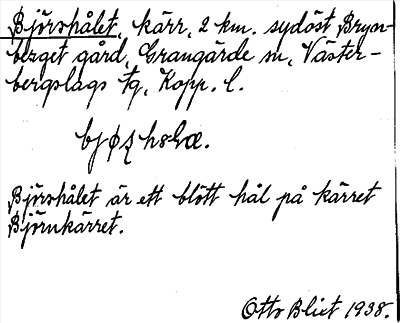 Björshålet, kärr, 2 km. sydöst Bryn-
berget gård, Grangärde sn, Väster-
bergslags fg, Kopp. l.
Björshålet är ett blött hål på kärret
Björnkärret.
Otto Blixt 1938.